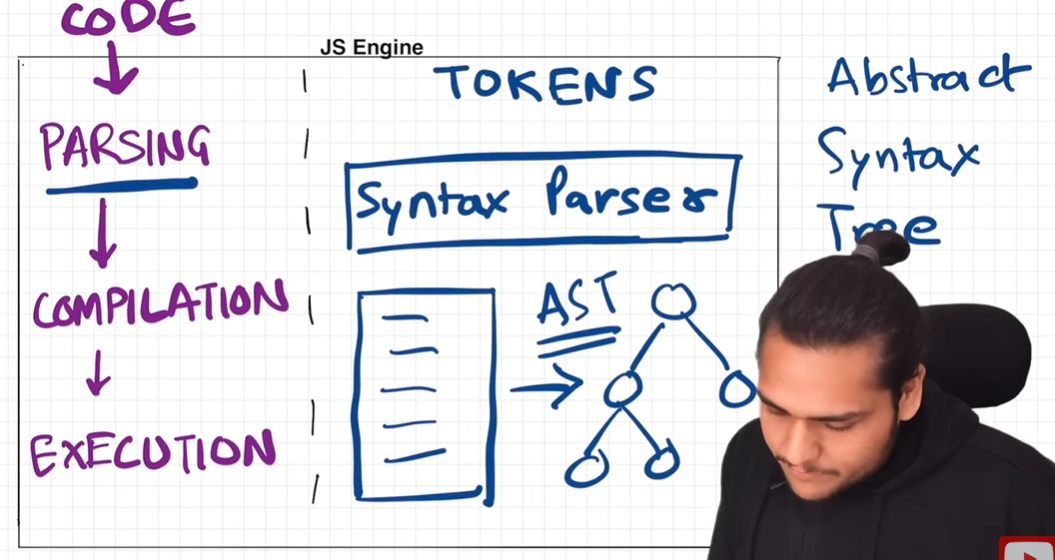 CODE
JS Engine
PARSING
COMPILATION
EXECUTION
TOKENS
Syntax Parser
AST
Abstract
Syntax
Tree